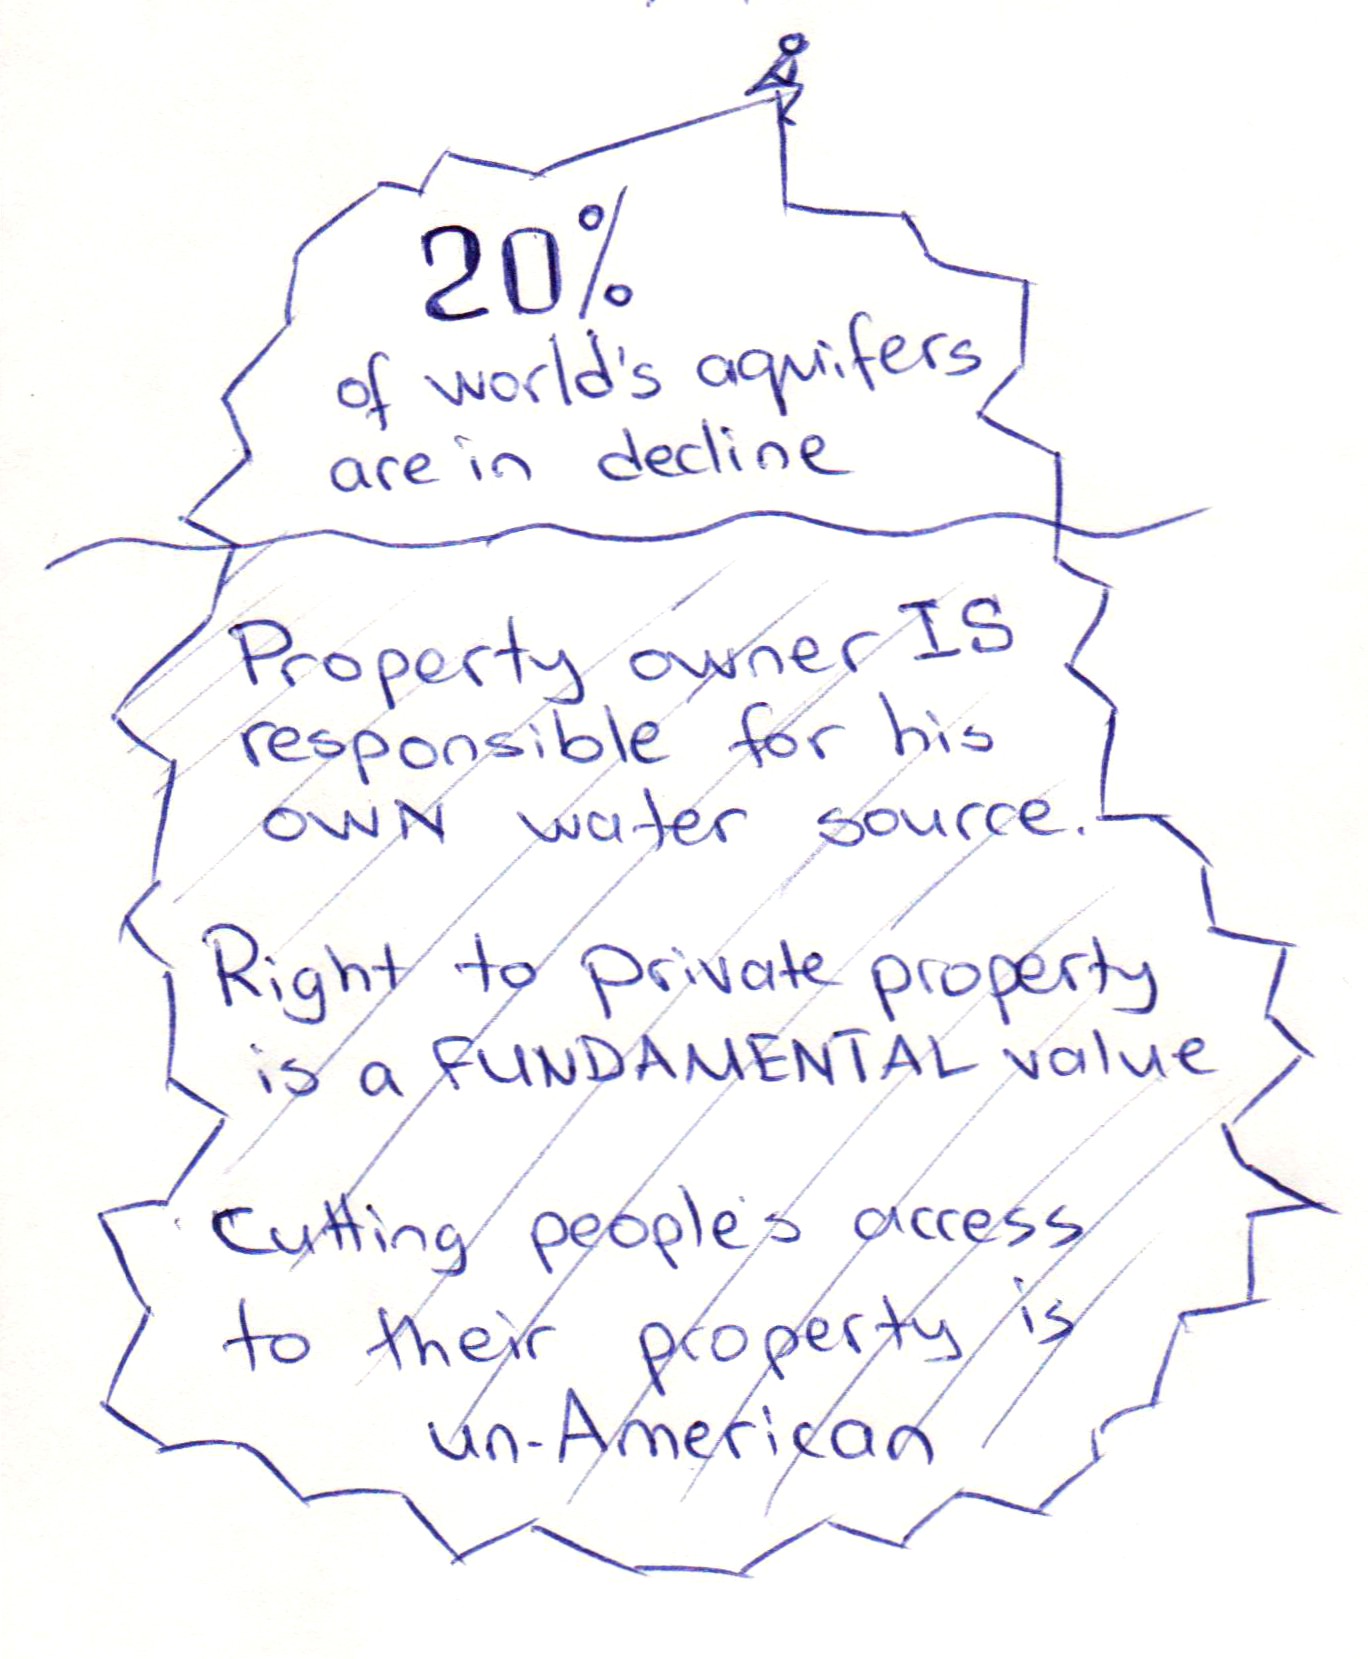 20%
of world's aquifers
are in decline
Property owner IS
responsible for his
OWN water source.
Right to private property
is a FUNDAMENTAL value
Cutting people's access
to their property is
un-American